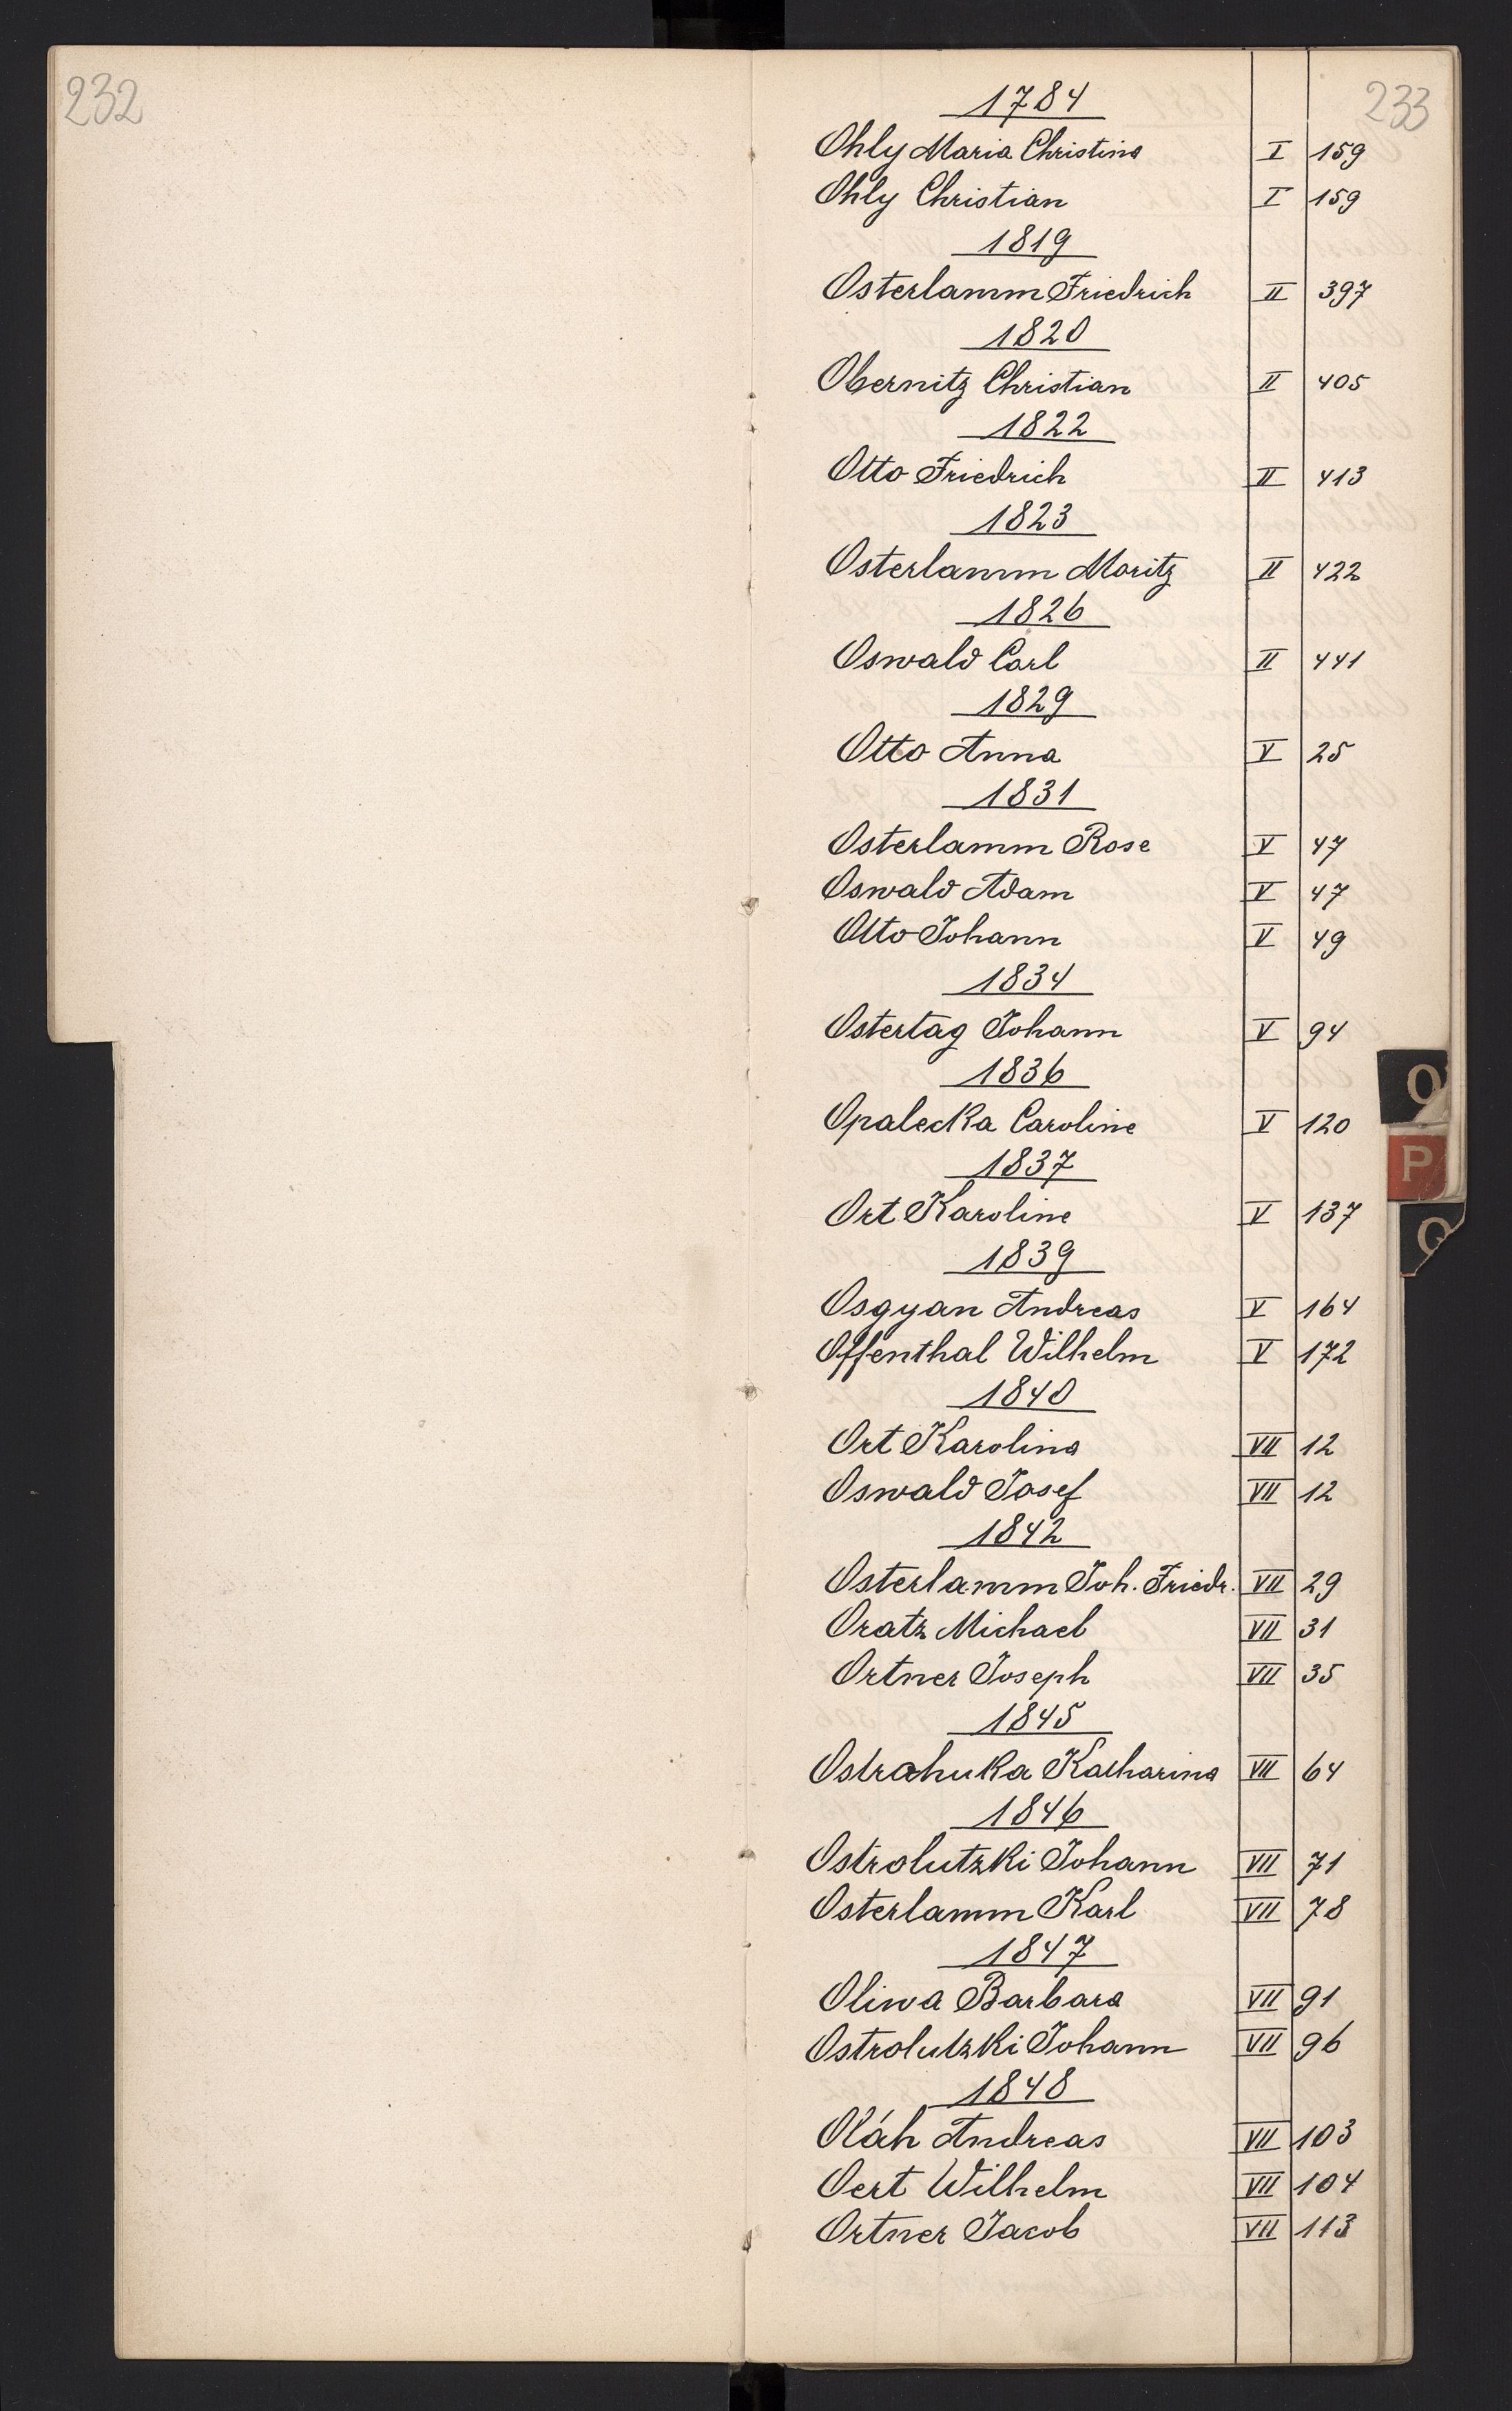 232
233
1784
Ohly Maria Christina I 159
Ohly Christian I 159
1819
Osterlamm Friedrich II 397
1820
Obernitz Christian II 405
1822
Otto Friedrich II 413
1823
Osterlamm Moritz II 422
1826
Oswald Carl II 441
1829
Otto Anna V 25
1831
Osterlamm Rose V 47
Oswald Adam V 47
Otto Johann V 49
1834
Ostertag Johann V 94
1836
Opalecka Caroline V 120
1837
Ort Karoline V 137
1839
Osgyan Andreas V 164
Offenthal Wilhelm V 172
1840
Ort Karolina VII 12
Oswald Josef VII 12
1842
Osterlamm Joh. Friedr. VII 29
Oratz Michael VII 31
Ortner Joseph VII 35
1845
Ostrahuka Katharina VII 64
1846
Ostrolutzki Johann VII 71
Osterlamm Karl VII 78
1847
Oliwa Barbara VII 91
Ostrolutzki Johann VII 96
1848
Oláh Andreas VII 103
Oert Wilhelm VII 104
Ortner Jacob VII 113
O
P
Q